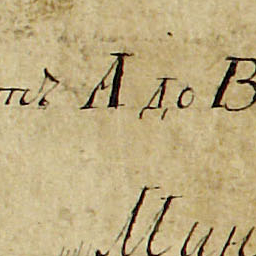 тъ А до В
Мин